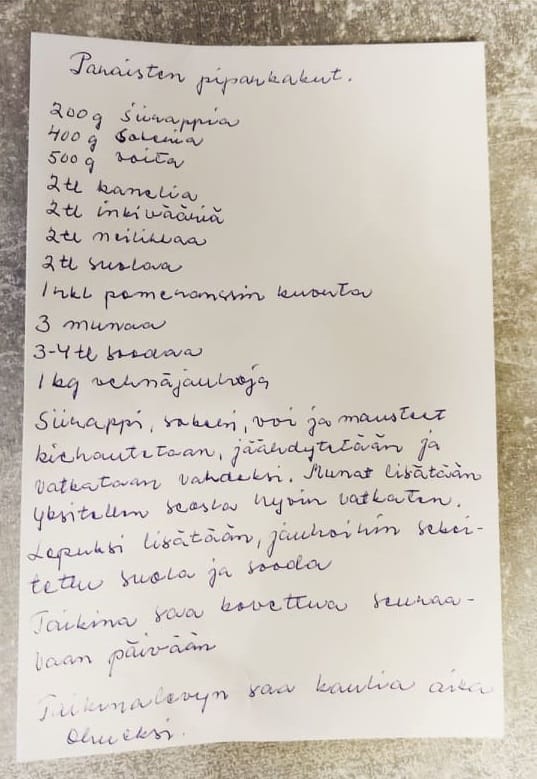 Paraisten piparkakut.
200g siirappia
400 g sokeria
500 g voita
2 tl kanelia
2 tl inkivääriä
2 tl neilikkaa
2 tl suolaa
1 rkl pomeranssin kuorta
3 munaa
3-4 tl soodaa
1 kg vehnäjauhoja
Siirappi, sokeri, voi ja mausteet
kiehautetaan, jäähdytetään ja
vatkataan vahdeksi. Munat lisätään
yksitellen seosta hyvin vatkaten.
Lopuksi lisätään, jauhoihin sekoi-
tettu suola ja sooda
Taikina saa kovettua seuraa-
vaan päivään
Taikinalevyn saa kaulia aika
ohueksi.